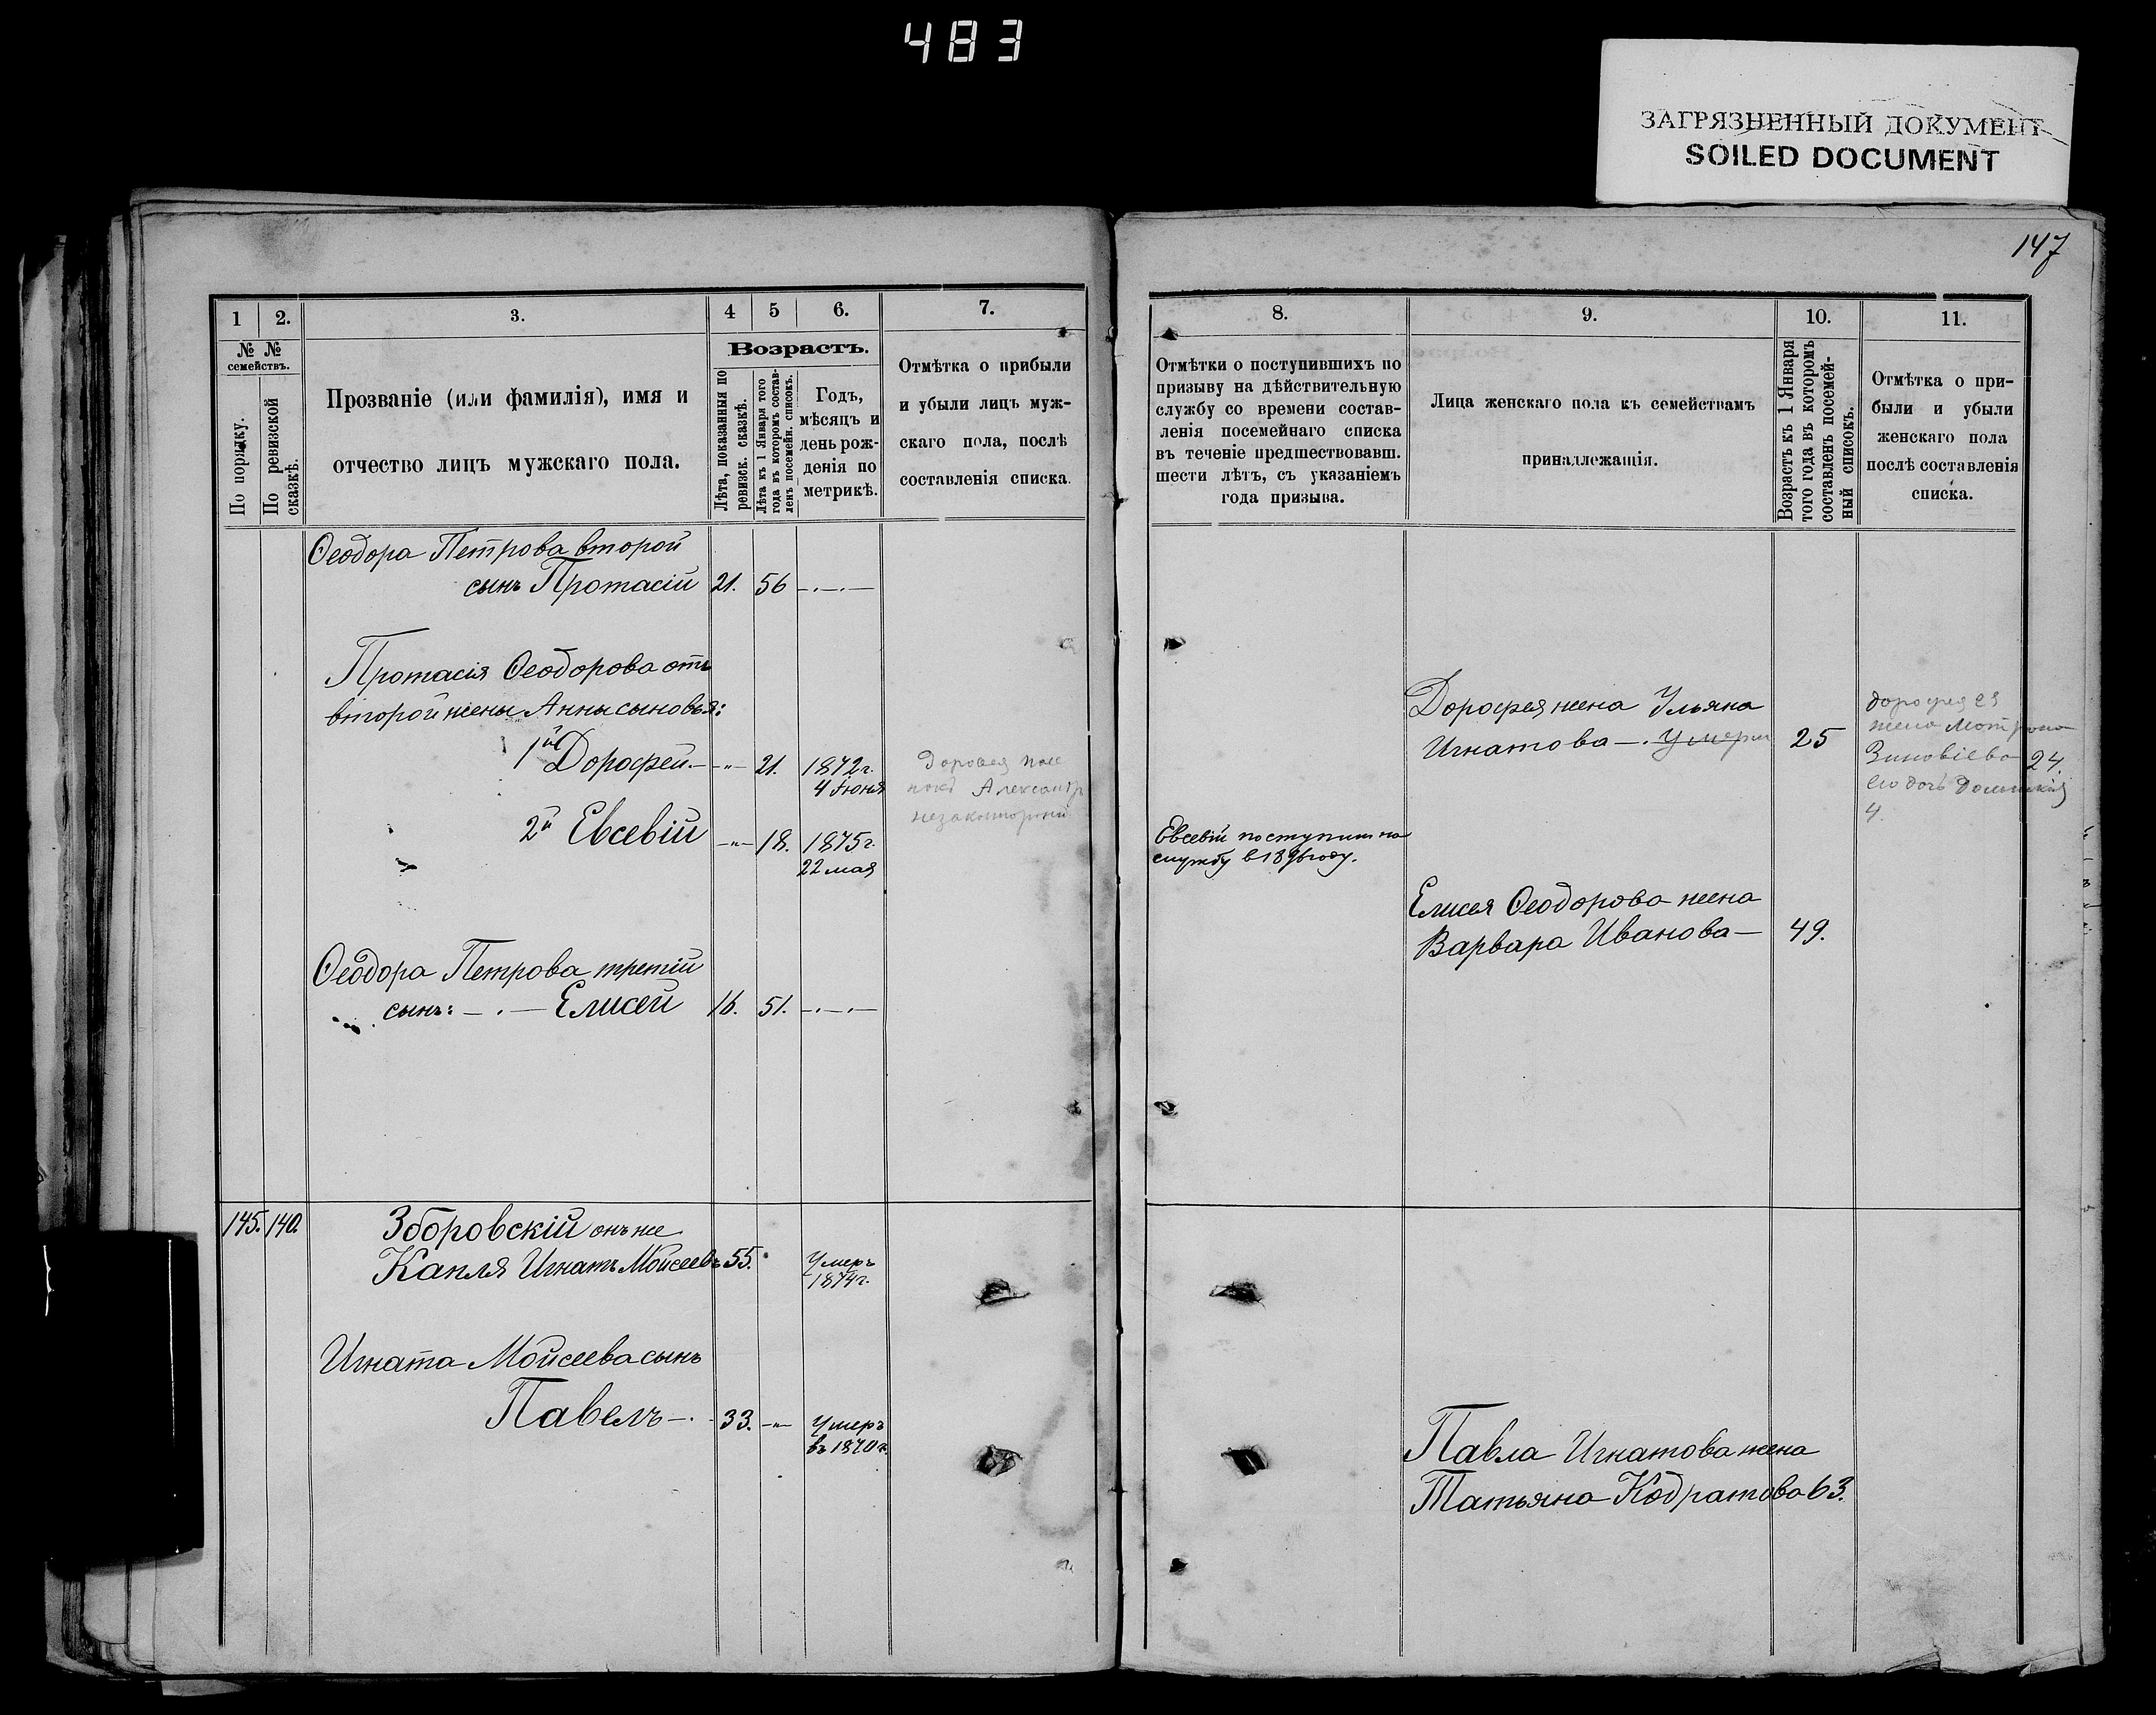 483
ЗАГРЯЗНЕННЫЙ ДОКУМЕНТ
SOILED DOCUMENT
147
1
2.
3.
4
5
6.
7.
№ №
семействъ.
По порядку.
По ревизской
сказкѣ.
Прозваніе (или фамилія), имя и
отчество лицъ мужскаго пола.
Возрастъ.
Лѣта, показанныя по
ревизск. сказкѣ.
Лѣта къ 1 Января того
года въ которомъ состав-
ленъ посемейн. списокъ.
Годъ,
мѣсяцъ и
день рож-
денія по
метрикѣ.
Отмѣтка о прибыли
и убыли лицъ муж-
скаго пола, послѣ
составленія списка.
Ѳеодора Петрова второй
сынъ Протасій 21. 56 —.—.—
Протасія Ѳеодорова отъ
второй жены Анны сыновья:
1й Дорофей.— —"— 21. 1872г.
4 Іюня
Александр
2й Евсевій —"— 18. 1875г.
22 мая
Ѳеодора Петрова третій
сынъ: —.— Елисей 16. 51. —.—.—
145. 140. Зборовскій онъ же
Капля Игнатъ Моисеевъ 55. Умеръ
1874г.
Игната Моисеева сынъ
Павелъ —. 33. —"— Умеръ
въ 1870г.
8.
9.
10.
11.
Отмѣтки о поступившихъ по
призыву на дѣйствительную
службу со времени состав-
ленія посемейнаго списка
въ теченіе предшествовавш.
шести лѣтъ, съ указаніемъ
года призыва.
Лица женскаго пола къ семействамъ
принадлежащія.
Возрастъ къ 1 Января
того года въ которомъ
составленъ посемей-
ный списокъ.
Отмѣтка о при-
были и убыли
женскаго пола
послѣ составленія
списка.
Дорофея жена Ульяна
Игнатова —. 25
жена Мотрона
Зиновіева 24.
его дочь
4.
Евсевій поступил на
службу в 1896 году.
Елисея Ѳеодорова жена
Варвара Иванова — 49.
Павла Игнатова жена
Татьяна Кодратова 63.